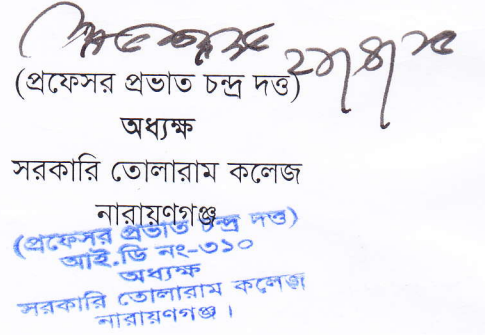 (প্রফেসর প্রভাত চন্দ্র দত্ত)
অধ্যক্ষ
সরকারি তোলারাম কলেজ
নারায়ণগঞ্জ
(প্রফেসর প্রভাত চন্দ্র দত্ত)
আই.ডি নং-৩১০
অধ্যক্ষ
সরকারি তোলারাম কলেজ
নারায়ণগঞ্জ।